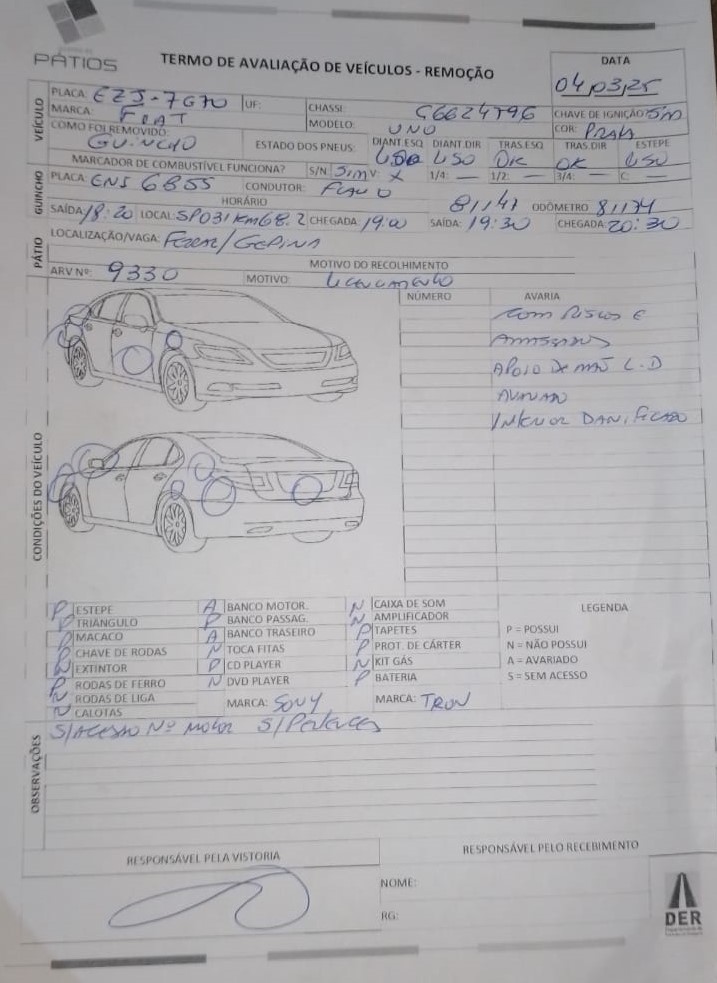 PÁTIOS
TERMO DE AVALIAÇÃO DE VEÍCULOS - REMOÇÃO
DATA
04/03/25
VEÍCULO
PLACA: EZJ-7G70 UF: CHASSI: C6624796 CHAVE DE IGNIÇÃO: Sim
MARCA: FIAT MODELO: UNO COR: PRATA
COMO FOI REMOVIDO: GUINCHO ESTADO DOS PNEUS: DIANT.ESQ USO DIANT.DIR USO TRAS.ESQ OK TRAS.DIR OK ESTEPE USO
MARCADOR DE COMBUSTÍVEL FUNCIONA? S/N: Sim V: X 1/4: — 1/2: — 3/4: — C: —
GUINCHO
PLACA: ENS 6B55 CONDUTOR: FLAVIO 81141 ODÔMETRO 81174
HORÁRIO
SAÍDA: 18:20 LOCAL: SP031 KM 68.2 CHEGADA: 19:00 SAÍDA: 19:30 CHEGADA: 20:30
PÁTIO
LOCALIZAÇÃO/VAGA:
MOTIVO DO RECOLHIMENTO
ARV Nº: 9330 MOTIVO: LICENCIAMENTO
CONDIÇÕES DO VEÍCULO
NÚMERO AVARIA
COM RISCOS E
AMASSADOS
APOIO DE MÃO L.D
AVARIADO
INTERIOR DANIFICADO
P ESTEPE A BANCO MOTOR. N CAIXA DE SOM LEGENDA
P TRIÂNGULO P BANCO PASSAG. N AMPLIFICADOR
P MACACO A BANCO TRASEIRO P TAPETES P = POSSUI
P CHAVE DE RODAS N TOCA FITAS P PROT. DE CÁRTER N = NÃO POSSUI
N EXTINTOR P CD PLAYER N KIT GÁS A = AVARIADO
P RODAS DE FERRO N DVD PLAYER P BATERIA S = SEM ACESSO
N RODAS DE LIGA MARCA: SONY MARCA: TRON
N CALOTAS
OBSERVAÇÕES
S/ACESSO Nº MOTOR S/PERTENCES
RESPONSÁVEL PELA VISTORIA RESPONSÁVEL PELO RECEBIMENTO
NOME:
RG:
DER